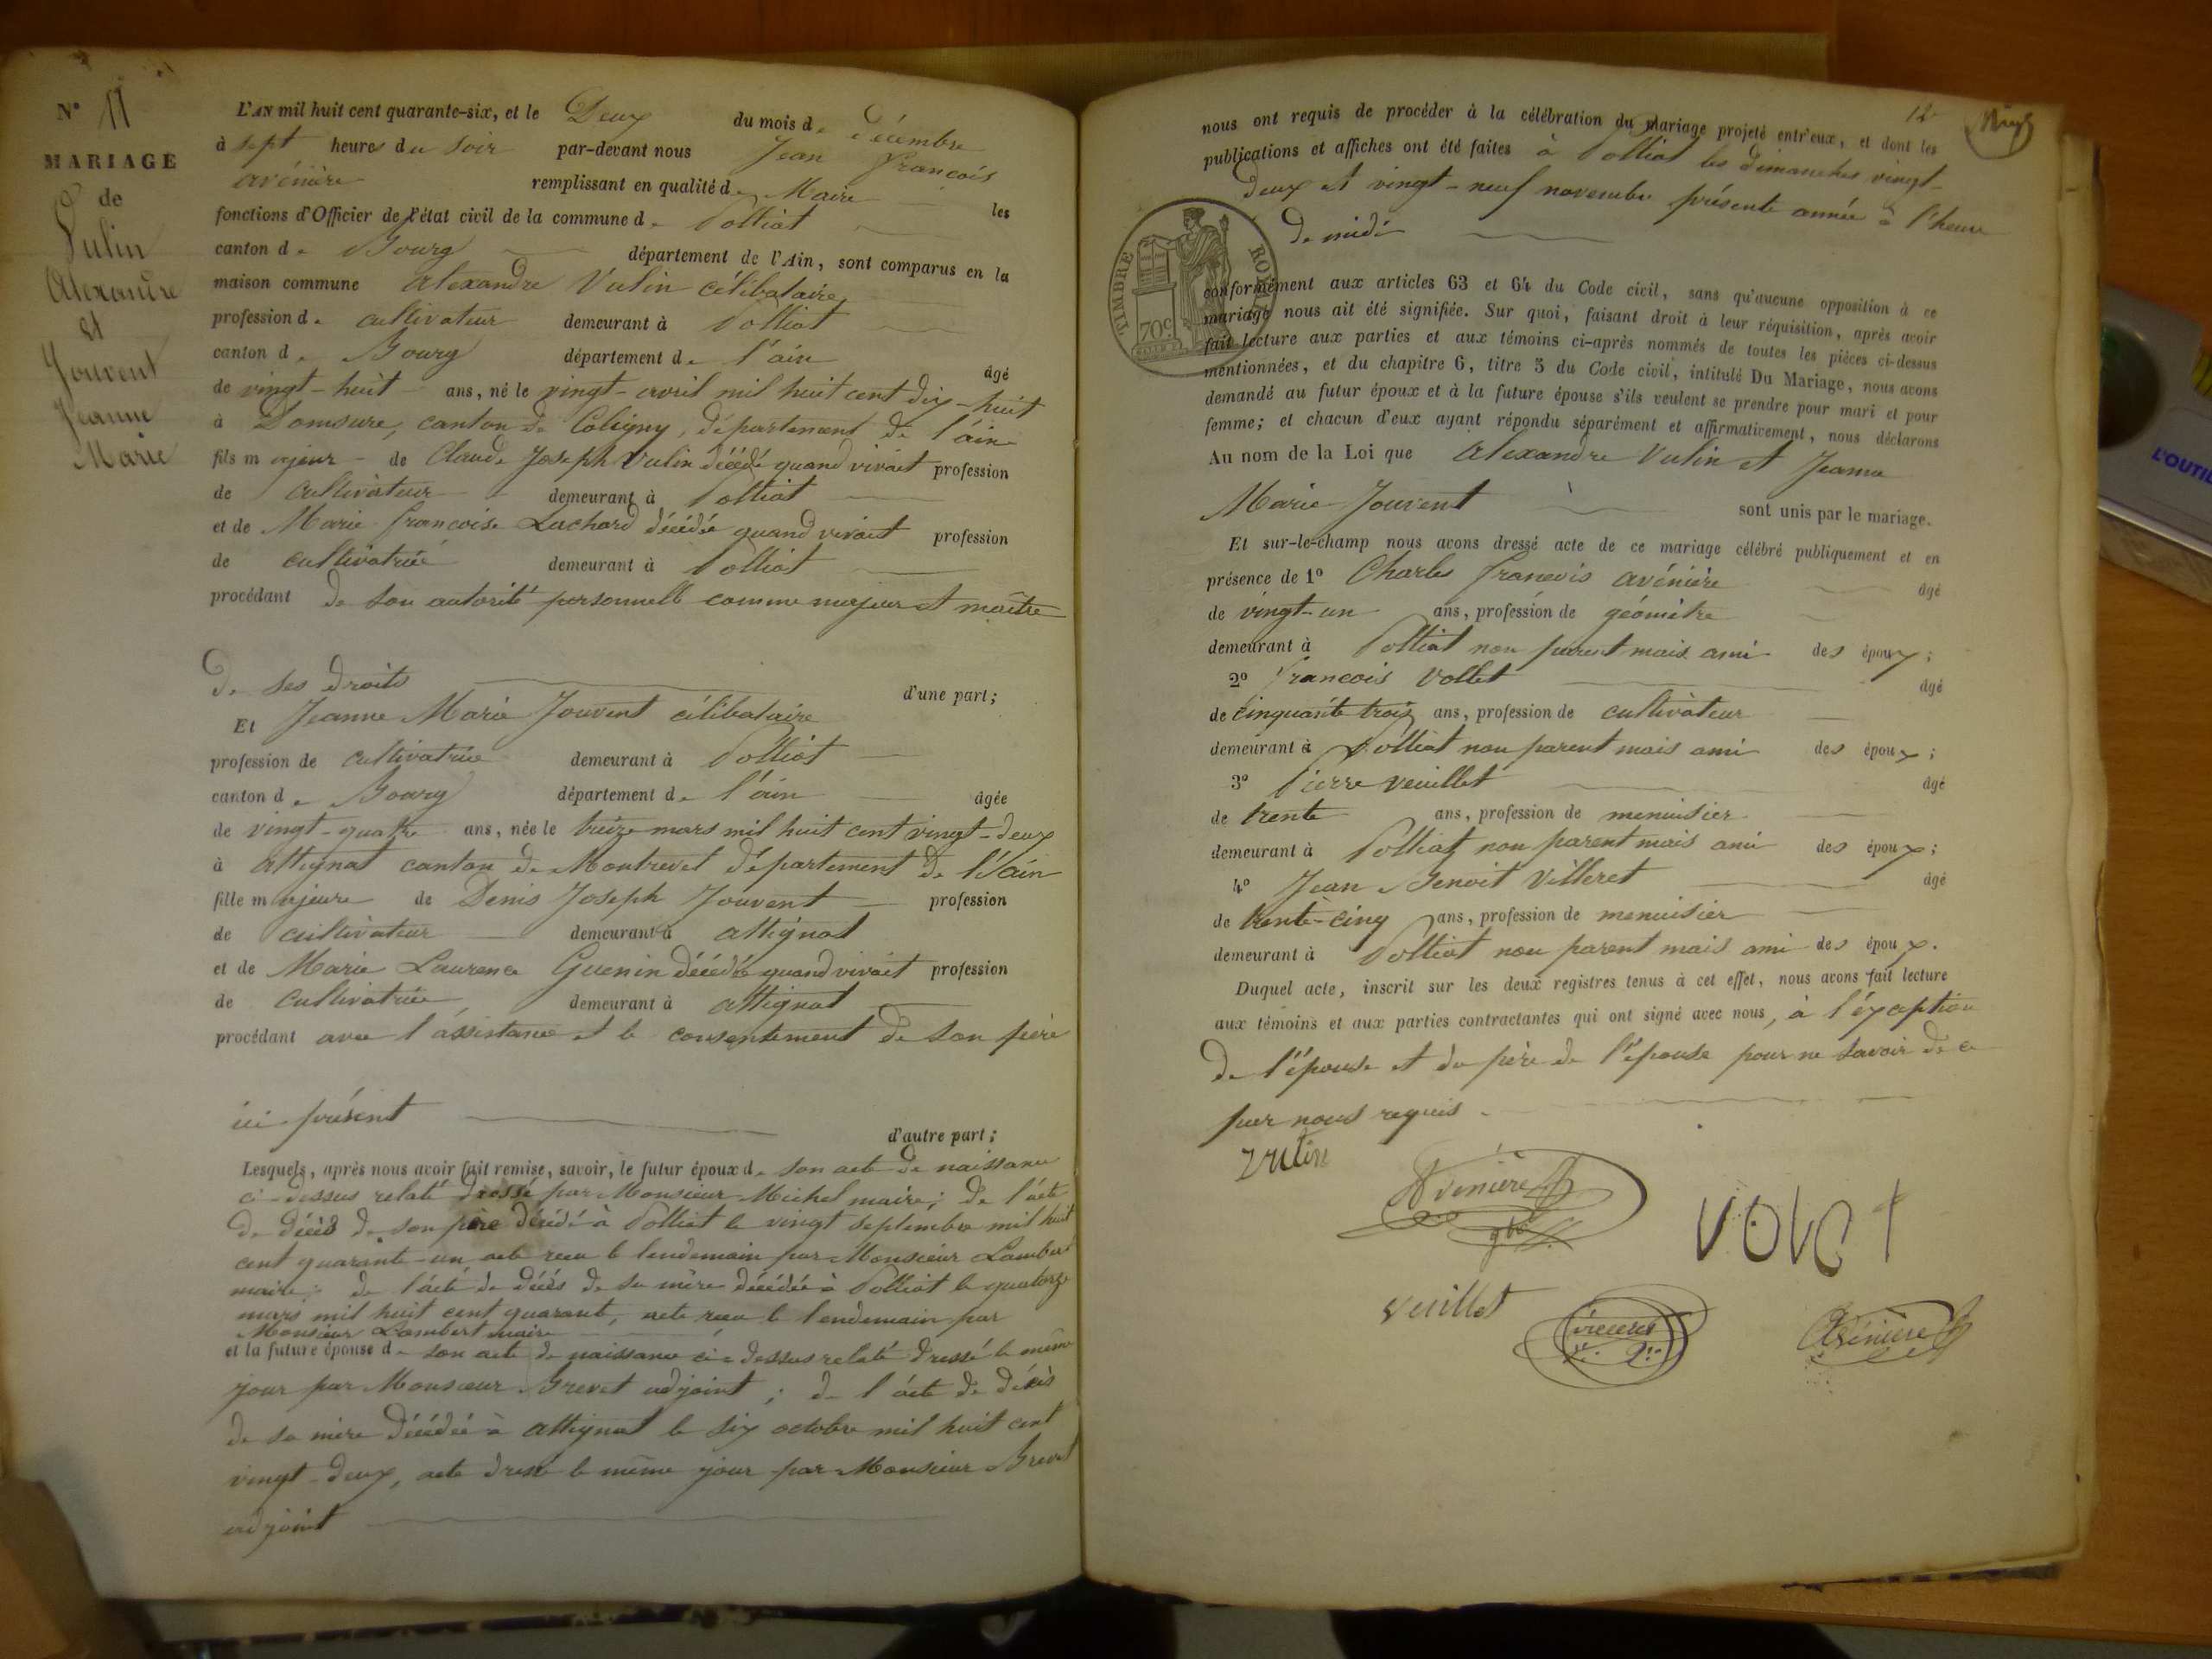 N° 11
MARIAGE
de
Vulin
Alexandre
et
Jouvent
Jeanne
Marie
L'AN mil huit cent quarante-six, et le Deux du mois de décembre
à sept heures du soir par-devant nous Jean François
avénière remplissant en qualité de Maire les
fonctions d'Officier de l'état civil de la commune de Polliat
canton de Bourg département de l'Ain, sont comparus en la
maison commune Alexandre Vulin célibataire,
profession de cultivateur demeurant à Polliat
canton de Bourg département de l'ain âgé
de vingt-huit ans, né le vingt-avril mil huit cent dix-huit
à Domsure, canton de Coligny, département de l'ain
fils majeur de Claude Joseph Vulin décédé quand vivait profession
de cultivateur demeurant à Polliat
et de Marie francoise Luchard décédée quand vivait profession
de cultivatrice demeurant à Polliat
procédant de son autorité personnelle comme majeur et maître
de ses droits d'une part;
Et Jeanne Marie Jouvent célibataire
profession de cultivatrice demeurant à Polliat
canton de Bourg département de l'ain âgée
de vingt-quatre ans, née le treize mars mil huit cent vingt-deux
à attignat canton de Montrevel département de l'ain
fille majeure de Denis Joseph Jouvent profession
de cultivateur demeurant à attignat
et de Marie Laurence Guenin décédée quand vivait profession
de cultivatrice demeurant à attignat
procédant avec l'assistance et le consentement de son père
ici présent d'autre part;
Lesquels, après nous avoir fait remise, savoir, le futur époux de son acte de naissance
ci-dessus relaté dressé par Monsieur Michel maire; de l'acte
de décès de son père décédé à Polliat le vingt septembre mil huit
cent quarante-un acte recu le lendemain par Monsieur Lambert
maire; de l'acte de décès de sa mère décédée à Polliat le quatorze
mars mil huit cent quarante, acte recu le lendemain par
Monsieur Lambert maire
et la future épouse de son acte de naissance ci-dessus relaté dressé le même
jour par Monsieur Brevet adjoint; de l'acte de décès
de sa mère décédée à attignat le six octobre mil huit cent
vingt-deux, acte dressé le même jour par Monsieur Brevet
adjoint
12
nous ont requis de procéder à la célébration du mariage projeté entr'eux, et dont les
publications et affiches ont été faites à Polliat les dimanches vingt-
deux et vingt-neuf novembre présente année à l'heure
de midi
TIMBRE ROYAL
70c
conformément aux articles 63 et 64 du Code civil, sans qu'aucune opposition à ce
mariage nous ait été signifiée. Sur quoi, faisant droit à leur réquisition, après avoir
fait lecture aux parties et aux témoins ci-après nommés de toutes les pièces ci-dessus
mentionnées, et du chapitre 6, titre 5 du Code civil, intitulé Du Mariage, nous avons
demandé au futur époux et à la future épouse s'ils veulent se prendre pour mari et pour
femme; et chacun d'eux ayant répondu séparément et affirmativement, nous déclarons
Au nom de la Loi que Alexandre Vulin et Jeanne
Marie Jouvent sont unis par le mariage.
Et sur-le-champ nous avons dressé acte de ce mariage célébré publiquement et en
présence de 1° Charles francois avénière âgé
de vingt-un ans, profession de géomètre
demeurant à Polliat non parent mais ami des époux;
2° francois Vollet âgé
de cinquante trois ans, profession de cultivateur
demeurant à Polliat non parent mais ami des époux;
3° Pierre veuillet âgé
de trente ans, profession de menuisier
demeurant à Polliat non parent mais ami des époux;
4° Jean Benoit Villeret âgé
de trente-cinq ans, profession de menuisier
demeurant à Polliat non parent mais ami des époux.
Duquel acte, inscrit sur les deux registres tenus à cet effet, nous avons fait lecture
aux témoins et aux parties contractantes qui ont signé avec nous, à l'éxception
de l'épouse et du père de l'épouse pour ne savoir de ce
par nous requis.
vulin
Avénière
volet
veuillet
Avénière